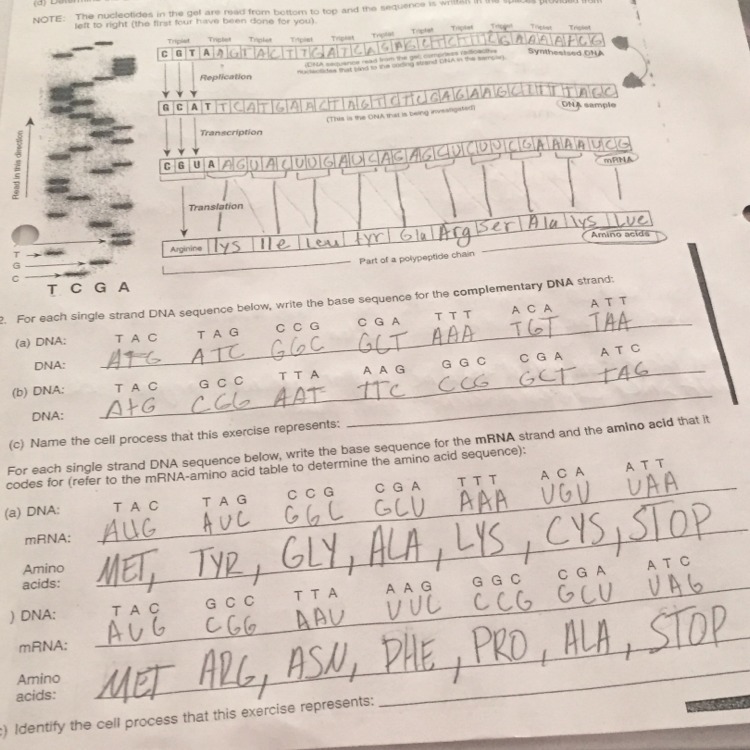 NOTE: The nucleotides in the gel are read from bottom to top and the sequence is written in the spaces provided from
left to right (the first four have been done for you).
Triplet Triplet Triplet Triplet Triplet Triplet Triplet Triplet Triplet Triplet
C G T A
Synthesised DNA
Replication
G C A T
DNA sample
(This is the DNA that is being investigated)
Transcription
C G U A
mRNA
Read in this direction
Translation
Arginine lys Ile leu tyr Glu Arg Ser Ala lys Lue
Amino acids
Part of a polypeptide chain
T
G
C
T C G A
2. For each single strand DNA sequence below, write the base sequence for the complementary DNA strand:
(a) DNA: T A C T A G C C G C G A T T T A C A A T T
DNA: ATG ATC GGC GCT AAA TGT TAA
(b) DNA: T A C G C C T T A A A G G G C C G A A T C
DNA: AtG CGG AAT TTC CCG GCT TAG
(c) Name the cell process that this exercise represents:
For each single strand DNA sequence below, write the base sequence for the mRNA strand and the amino acid that it
codes for (refer to the mRNA-amino acid table to determine the amino acid sequence):
(a) DNA: T A C T A G C C G C G A T T T A C A A T T
mRNA: AUG AUC GGC GCU AAA UGU UAA
Amino
acids: MET, TYR, GLY, ALA, LYS, CYS, STOP
) DNA: T A C G C C T T A A A G G G C C G A A T C
mRNA: AUG CGG AAU UUC CCG GCU UAG
Amino
acids: MET ARG, ASN, PHE, PRO, ALA, STOP
) Identify the cell process that this exercise represents: